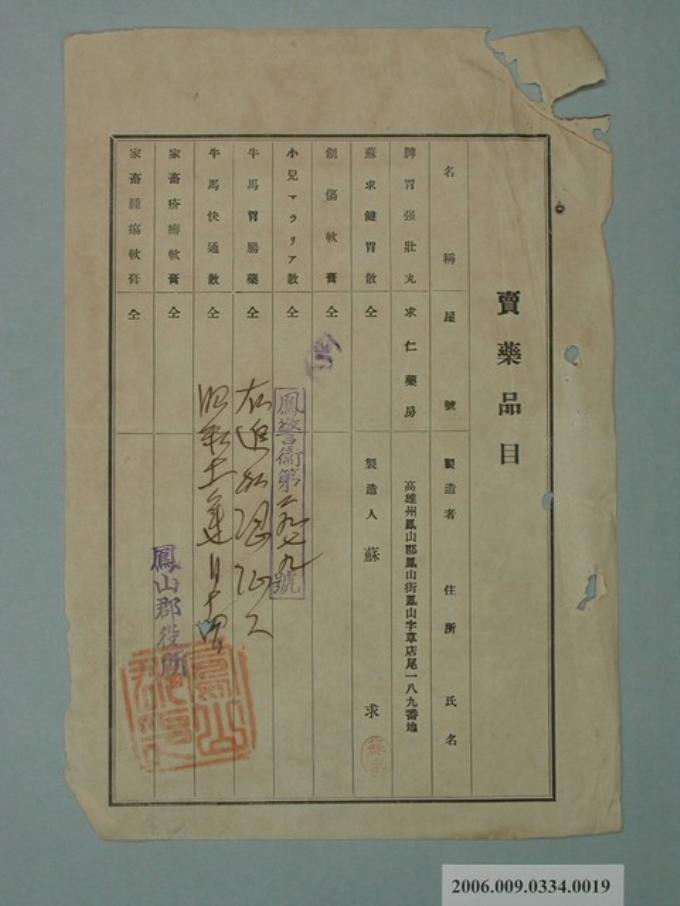 賣藥品目
名稱 屋號 製造者 住所 氏名
脾胃强壯丸 求仁藥房 高雄州鳳山郡鳳山街鳳山字草店尾一八九番地
蘇求健胃散 仝 製造人 蘇求
創傷軟膏 仝
小兒マラリア散 仝
鳳警衛第一九七九號
牛馬胃腸藥 仝
牛馬快通散 仝
昭和十一年 月十四日
家畜疥癬軟膏 仝
鳳山郡役所
家畜腫瘍軟膏 仝
蘇求
2006.009.0334.0019